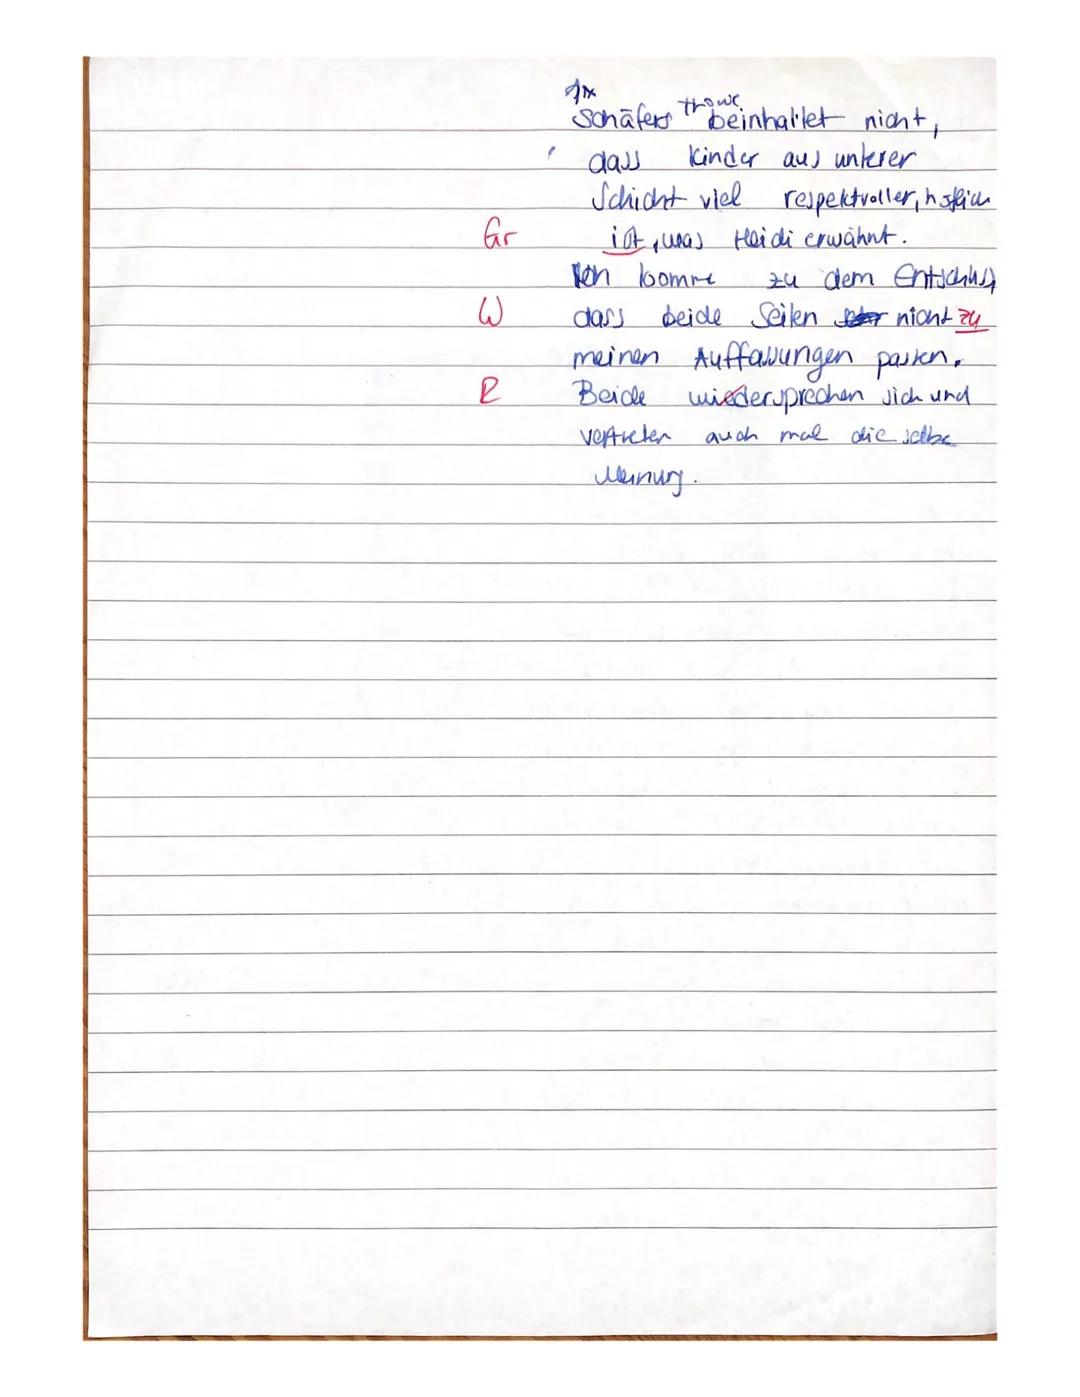 Schäfers These beinhaltet nicht,
dass Kinder aus unterer
Schicht viel respektvoller, höflich
Gr ist, was Heidi erwähnt.
Ich komme zu dem Entschluss,
W dass beide Seiten nicht zu
meinen Auffassungen passen.
R Beide wiedersprechen sich und
vertreten auch mal die selbe
Meinung.